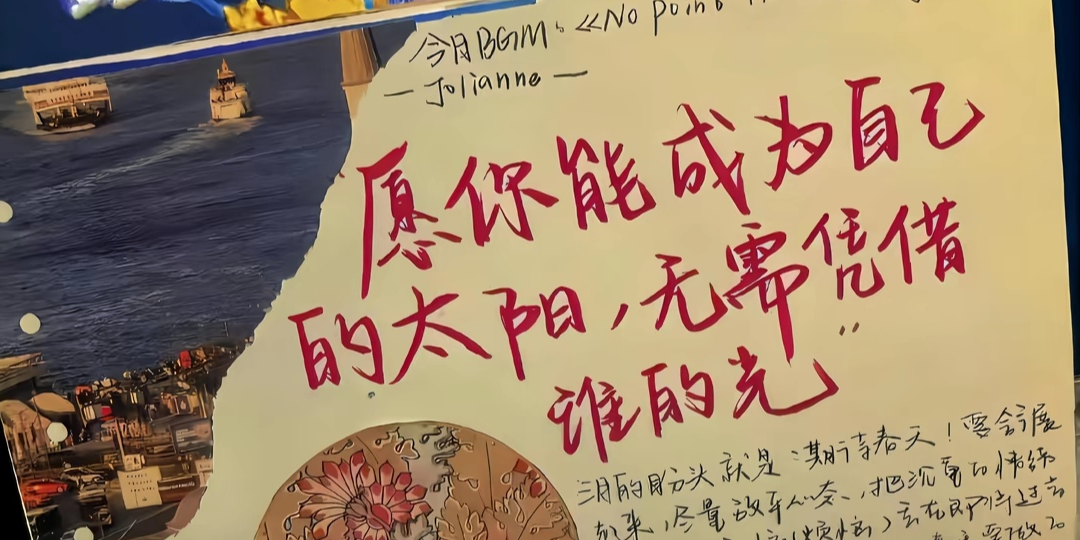 今月BGM:《No Point
—Jolianne—
愿你能成为自己
的太阳,无需凭借
谁的光"
三月的月份头就是期待春天!要舒展
起来,尽量放平心态,把沉重的情绪
去在即将过去
要做